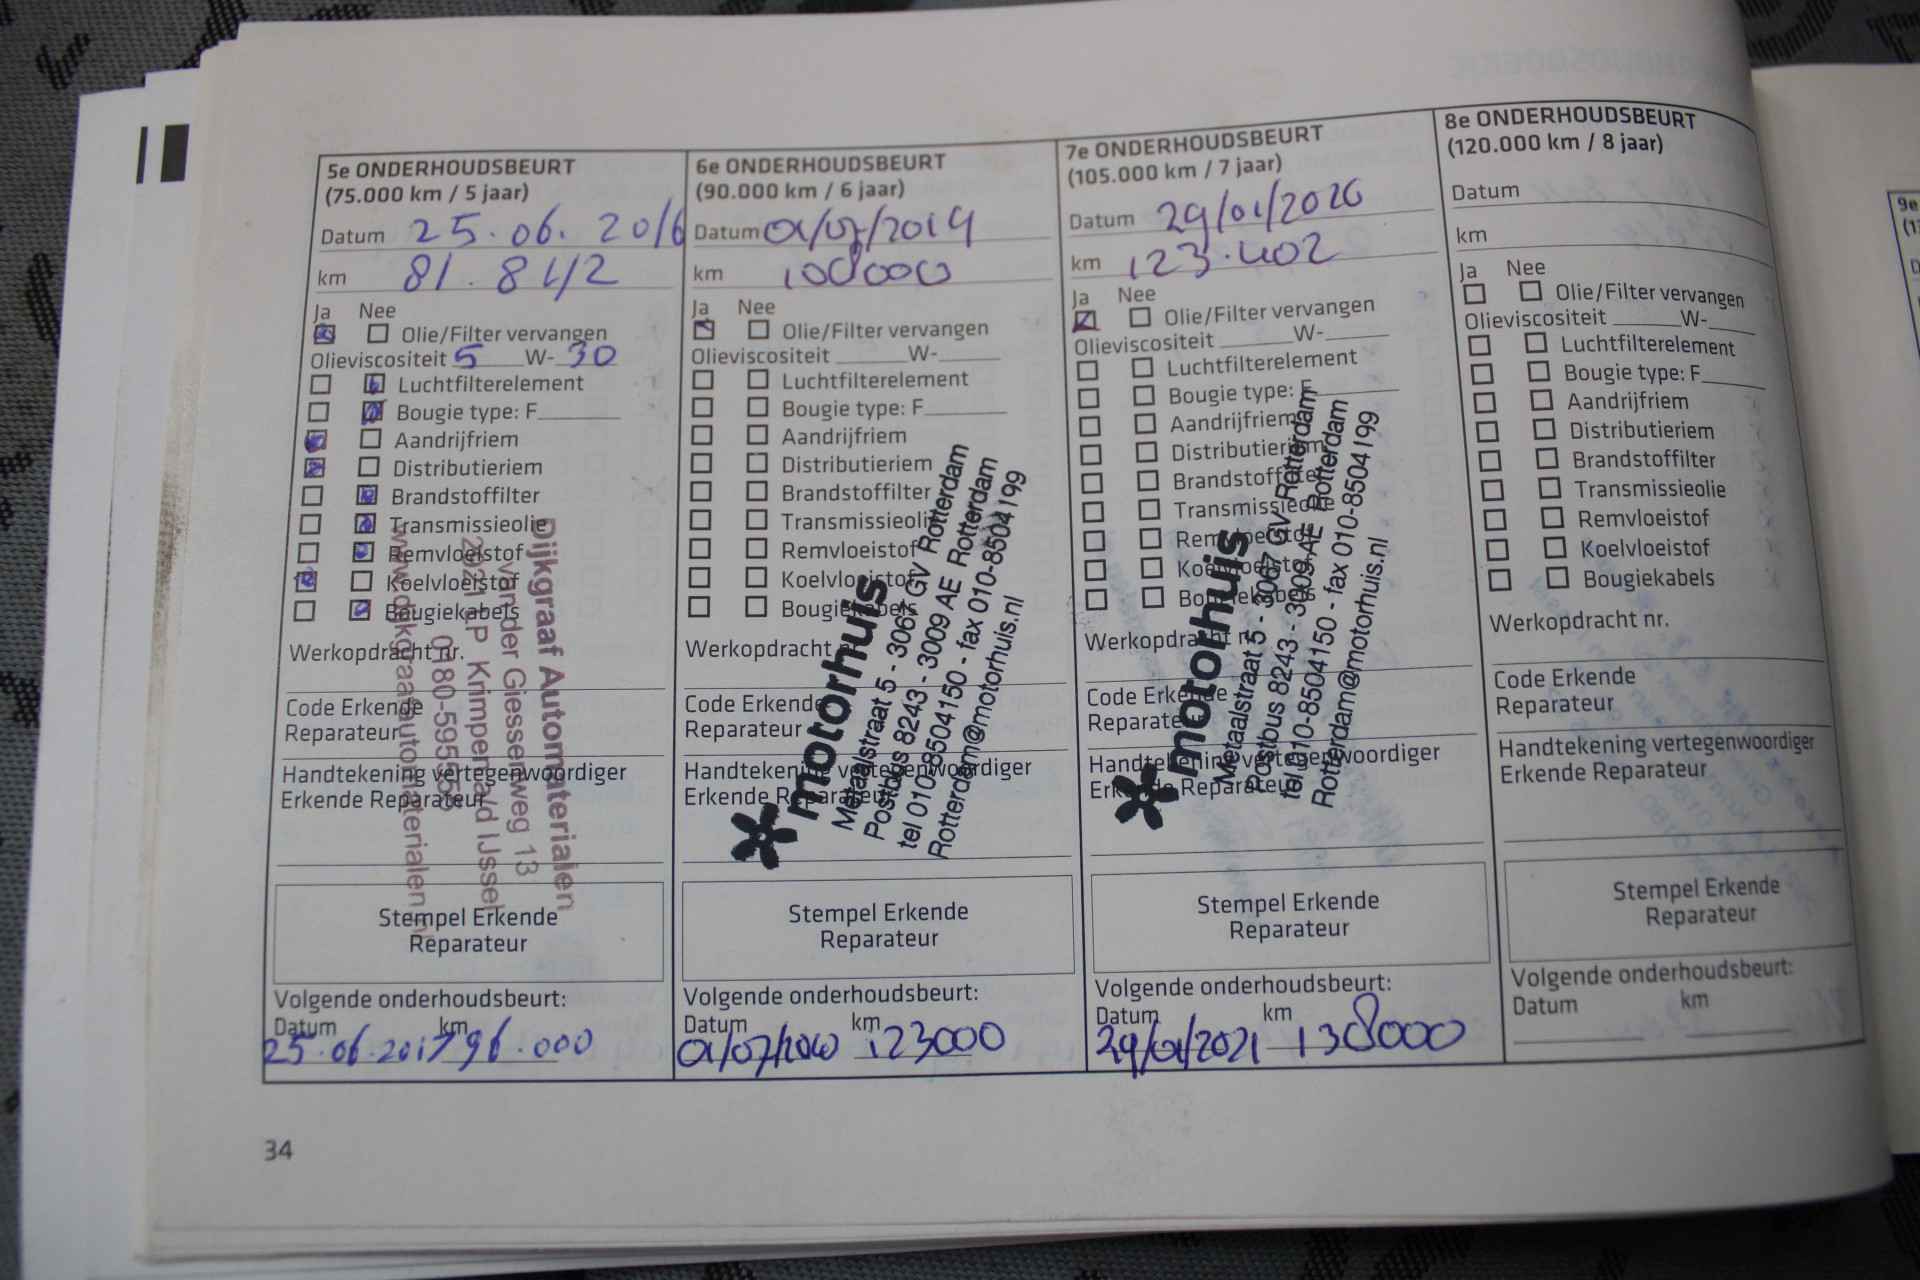 5e ONDERHOUDSBEURT
(75.000 km / 5 jaar)
Datum 25.06.2016
km 81.842
Ja Nee
Olie/Filter vervangen
Olieviscositeit 5 W- 30
Luchtfilterelement
Bougie type: F
Aandrijfriem
Distributieriem
Brandstoffilter
Transmissieolie
Remvloeistof
Koelvloeistof
Bougiekabels
Werkopdracht nr.
Code Erkende
Reparateur
Handtekening vertegenwoordiger
Erkende Reparateur
Dijkgraaf Automaterialen
van der Giessenweg 13
2921 LP Krimpen a/d IJssel
Stempel Erkende
Reparateur
Volgende onderhoudsbeurt:
Datum km
25.06.2017 96.000
6e ONDERHOUDSBEURT
(90.000 km / 6 jaar)
Datum 01/07/2019
km 108000
Ja Nee
Olie/Filter vervangen
Olieviscositeit W-
Luchtfilterelement
Bougie type: F
Aandrijfriem
Distributieriem
Brandstoffilter
Transmissieolie
Remvloeistof
Koelvloeistof
Bougiekabels
Werkopdracht nr.
Code Erkende
Reparateur
Handtekening vertegenwoordiger
Erkende Reparateur
motorhuis
Metaalstraat 5 - 3067 GV Rotterdam
Postbus 8243 - 3009 AE Rotterdam
tel 010-8504150 - fax 010-8504199
Rotterdam@motorhuis.nl
Stempel Erkende
Reparateur
Volgende onderhoudsbeurt:
Datum km
01/07/2020 123000
7e ONDERHOUDSBEURT
(105.000 km / 7 jaar)
Datum 29/01/2020
km 123.402
Ja Nee
Olie/Filter vervangen
Olieviscositeit W-
Luchtfilterelement
Bougie type: F
Aandrijfriem
Distributieriem
Brandstoffilter
Transmissieolie
Remvloeistof
Koelvloeistof
Bougiekabels
Werkopdracht nr.
Code Erkende
Reparateur
Handtekening vertegenwoordiger
Erkende Reparateur
motorhuis
Metaalstraat 5 - 3067 GV Rotterdam
Postbus 8243 - 3009 AE Rotterdam
tel 010-8504150 - fax 010-8504199
Rotterdam@motorhuis.nl
Stempel Erkende
Reparateur
Volgende onderhoudsbeurt:
Datum km
29/01/2021 138000
8e ONDERHOUDSBEURT
(120.000 km / 8 jaar)
Datum
km
Ja Nee
Olie/Filter vervangen
Olieviscositeit W-
Luchtfilterelement
Bougie type: F
Aandrijfriem
Distributieriem
Brandstoffilter
Transmissieolie
Remvloeistof
Koelvloeistof
Bougiekabels
Werkopdracht nr.
Code Erkende
Reparateur
Handtekening vertegenwoordiger
Erkende Reparateur
Stempel Erkende
Reparateur
Volgende onderhoudsbeurt:
Datum km
9e
34